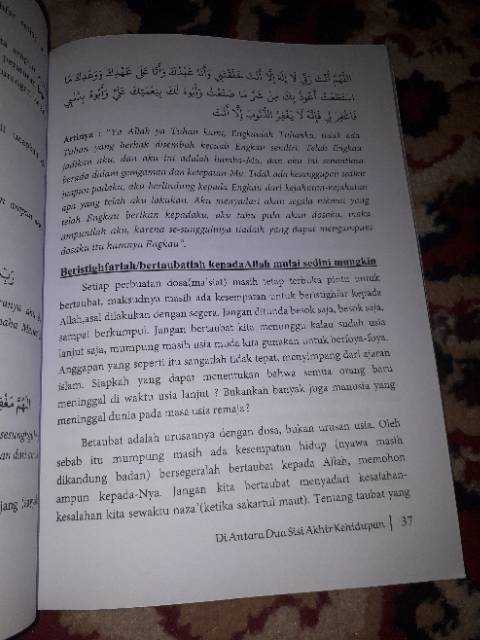 اللَّهُمَّ أَنْتَ رَبِّي لَا إِلَهَ إِلَّا أَنْتَ خَلَقْتَنِي وَأَنَا عَبْدُكَ وَأَنَا عَلَى عَهْدِكَ وَوَعْدِكَ مَا
اسْتَطَعْتُ أَعُوذُ بِكَ مِنْ شَرِّ مَا صَنَعْتُ وَأَبُوءُ لَكَ بِنِعْمَتِكَ عَلَيَّ وَأَبُوءُ بِذَنْبِي
فَاغْفِرْ لِي فَإِنَّهُ لَا يَغْفِرُ الذُّنُوبَ إِلَّا أَنْتَ
Artinya : "Ya Allah ya Tuhan kami, Engkaulah Tuhanku, tidak ada
Tuhan yang berhak disembah kecuali Engkau sendiri. Telah Engkau
jadikan aku, dan aku ini adalah hamba-Mu, dan aku ini senantiasa
berada dalam genggaman dan ketetapan Mu. Tidak ada kesanggupan sedikit
jaupun padaku, aku berlindung kepada Engkau dari kejahatan-kejahatan
apa yang telah aku lakukan. Aku menyadari akan segala nikmat yang
telah Engkau berikan kepadaku, aku tahu pula akan dosaku, maka
ampunilah aku, karena se-sungguhnya tiadalk yang dapat mengampuni
dosaku itu kamnya Engkau".
Beristighfarlah/bertaubatlah kepadaAllah mulai sedini mungkin
Setiap perbuatan dosa(ma'siat) masih tetap terbuka pintu untuk
bertaubat, maksudnya masih ada kesempatan untuk beristighfar kepada
Allah,asal dilakukan dengan segera. Jangan ditunda besok saja, besok saja,
sampai berkumpul. Jangan bertaubat kita menunggu kalau sudah usia
lanjut saja, mumpung masih usia muda kita gunakan untuk berfoya-foya.
Anggapan yang seperti itu sangatlah tidak tepat, menyimpang dari ajaran
islam. Siapkah yang dapat menentukan bahwa semua orang baru
meninggal di waktu usia lanjut ? Bukankah banyak juga manusia yang
meninggal dunia pada masa usia remaja?
Betaubat adalah urusannya dengan dosa, bukan urusan usia. Oleh
sebab itu mumpung masih ada kesempatan hidup (nyawa masih
dikandung badan) bersegeralah bertaubat kepada Allah, memohon
ampun kepada-Nya. Jangan kita bertaubat menyadari kesalahan-
kesalahan kita sewaktu naza'(ketika sakartul maut). Tentang taubat yang
Di Antara Dua Sisi Akhir Kehidupan | 37